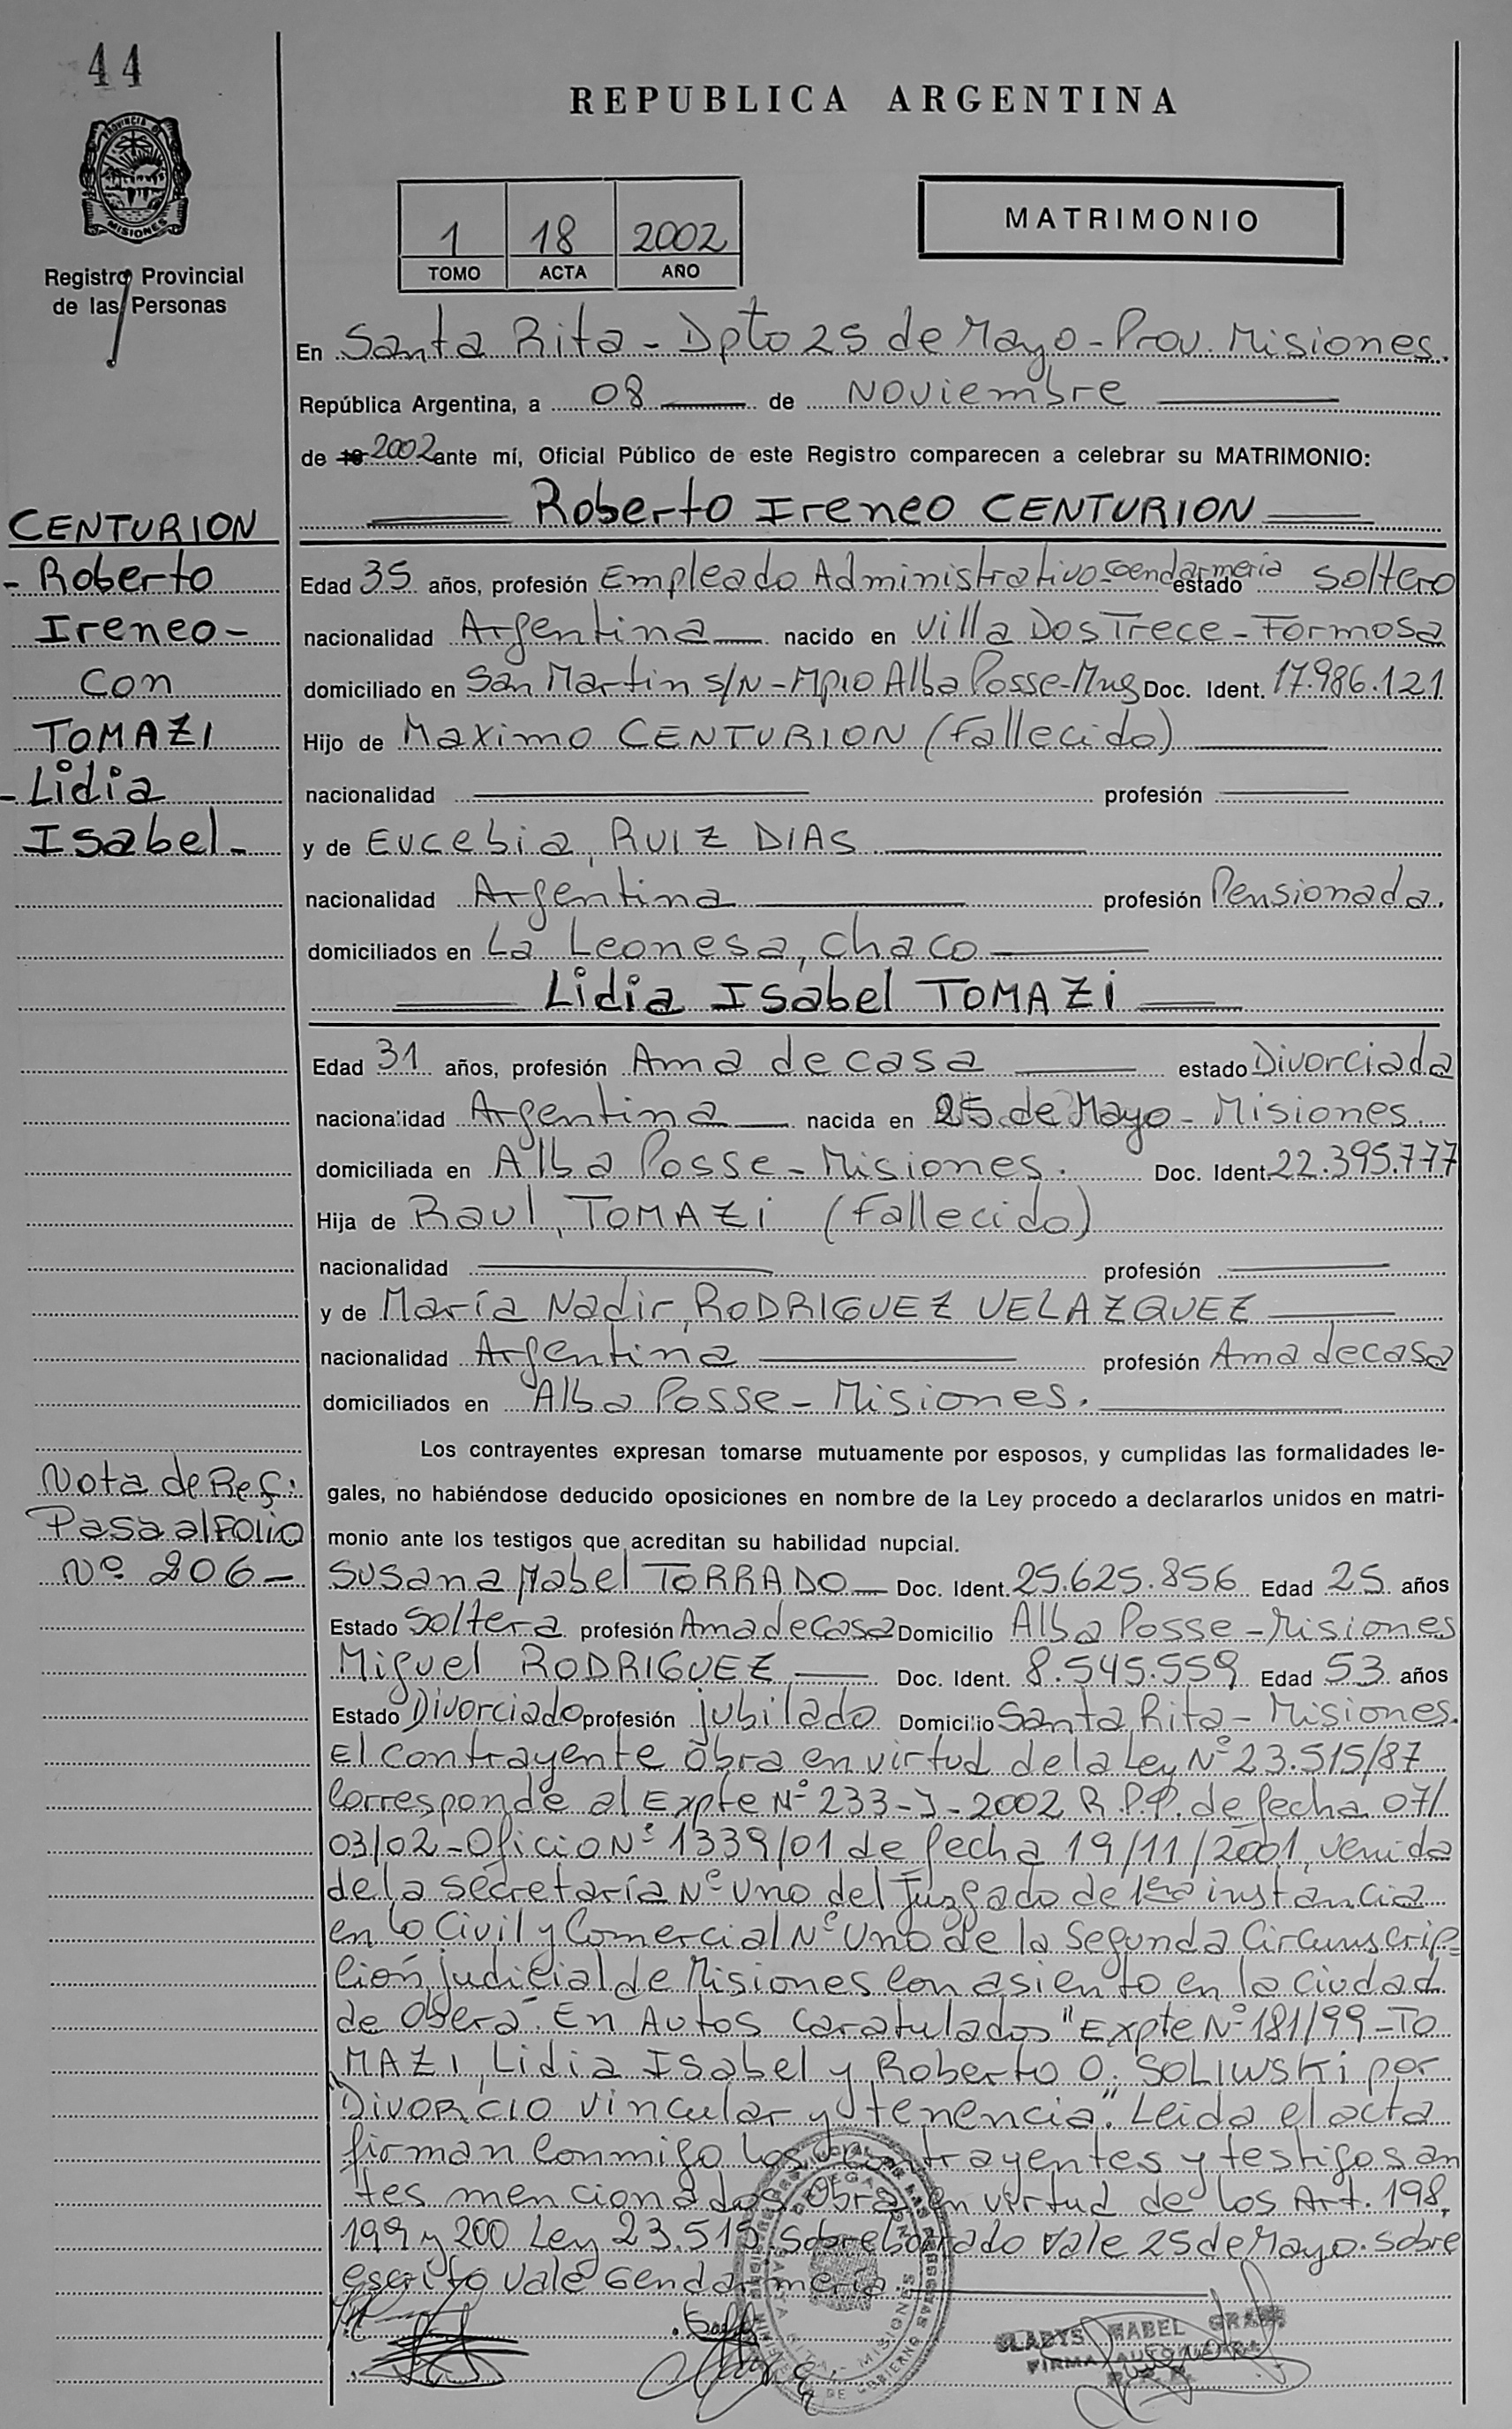 44
REPUBLICA ARGENTINA
PROVINCIA DE
MISIONES
Registro Provincial
de las Personas
1 18 2002
TOMO ACTA AÑO
MATRIMONIO
En Santa Rita - Dpto 25 de Mayo - Prov. Misiones.
República Argentina, a 08 de Noviembre
de 19 2002 ante mí, Oficial Público de este Registro comparecen a celebrar su MATRIMONIO:
Roberto Ireneo CENTURION
CENTURION
- Roberto
Ireneo -
con
TOMAZI
- Lidia
Isabel -
Edad 35 años, profesión Empleado Administrativo Gendarmeria estado Soltero
nacionalidad Argentina nacido en Villa Dos Trece - Formosa
domiciliado en San Martin s/N - Mpio Alba Posse - Mns Doc. Ident. 17.986.121
Hijo de Maximo CENTURION (Fallecido)
nacionalidad profesión
y de Eucebia, RUIZ DIAS
nacionalidad Argentina profesión Pensionada.
domiciliados en La Leonesa, Chaco
Lidia Isabel TOMAZI
Edad 31 años, profesión Ama de casa estado Divorciada
nacionalidad Argentina nacida en 25 de Mayo - Misiones.
domiciliada en Alba Posse - Misiones. Doc. Ident. 22.395.777
Hija de Raul, TOMAZI (Fallecido)
nacionalidad profesión
y de María Nadir, RODRIGUEZ VELAZQUEZ
nacionalidad Argentina profesión Ama de casa
domiciliados en Alba Posse - Misiones.
Los contrayentes expresan tomarse mutuamente por esposos, y cumplidas las formalidades le-
gales, no habiéndose deducido oposiciones en nombre de la Ley procedo a declararlos unidos en matri-
monio ante los testigos que acreditan su habilidad nupcial.
Nota de Ref:
Pasa al Folio
Nº 206 -
Susana Mabel TORRADO Doc. Ident. 25.625.856 Edad 25 años
Estado Soltera profesión Ama de Casa Domicilio Alba Posse - Misiones
Miguel RODRIGUEZ Doc. Ident. 8.545.559 Edad 53 años
Estado Divorciado profesión jubilado Domicilio Santa Rita - Misiones.
El contrayente obra en virtud de la Ley Nº 23.515/87
Corresponde al Expte Nº 233-J-2002 R.P.P. de fecha 07/
03/02 - Oficio Nº 1339/01 de fecha 19/11/2001, venida
de la secretaría Nº Uno del Juzgado de 1era instancia
en lo Civil y Comercial Nº Uno de la Segunda Circunscrip=
ción judicial de Misiones con asiento en la ciudad
de Oberá. En Autos Caratulados "Expte Nº 181/99 - TO
MAZI, Lidia Isabel y Roberto O. SOLIWSKI por
Divorcio vincular y tenencia". Leida el acta
firman conmigo los contrayentes y testigos an
tes mencionados. Obra en virtud de los Art. 198,
199 y 200 Ley 23.515. Sobreborrado vale 25 de Mayo. sobre
escrito vale Gendarmería.
GLADYS MABEL
FIRMA AUTORIZADA